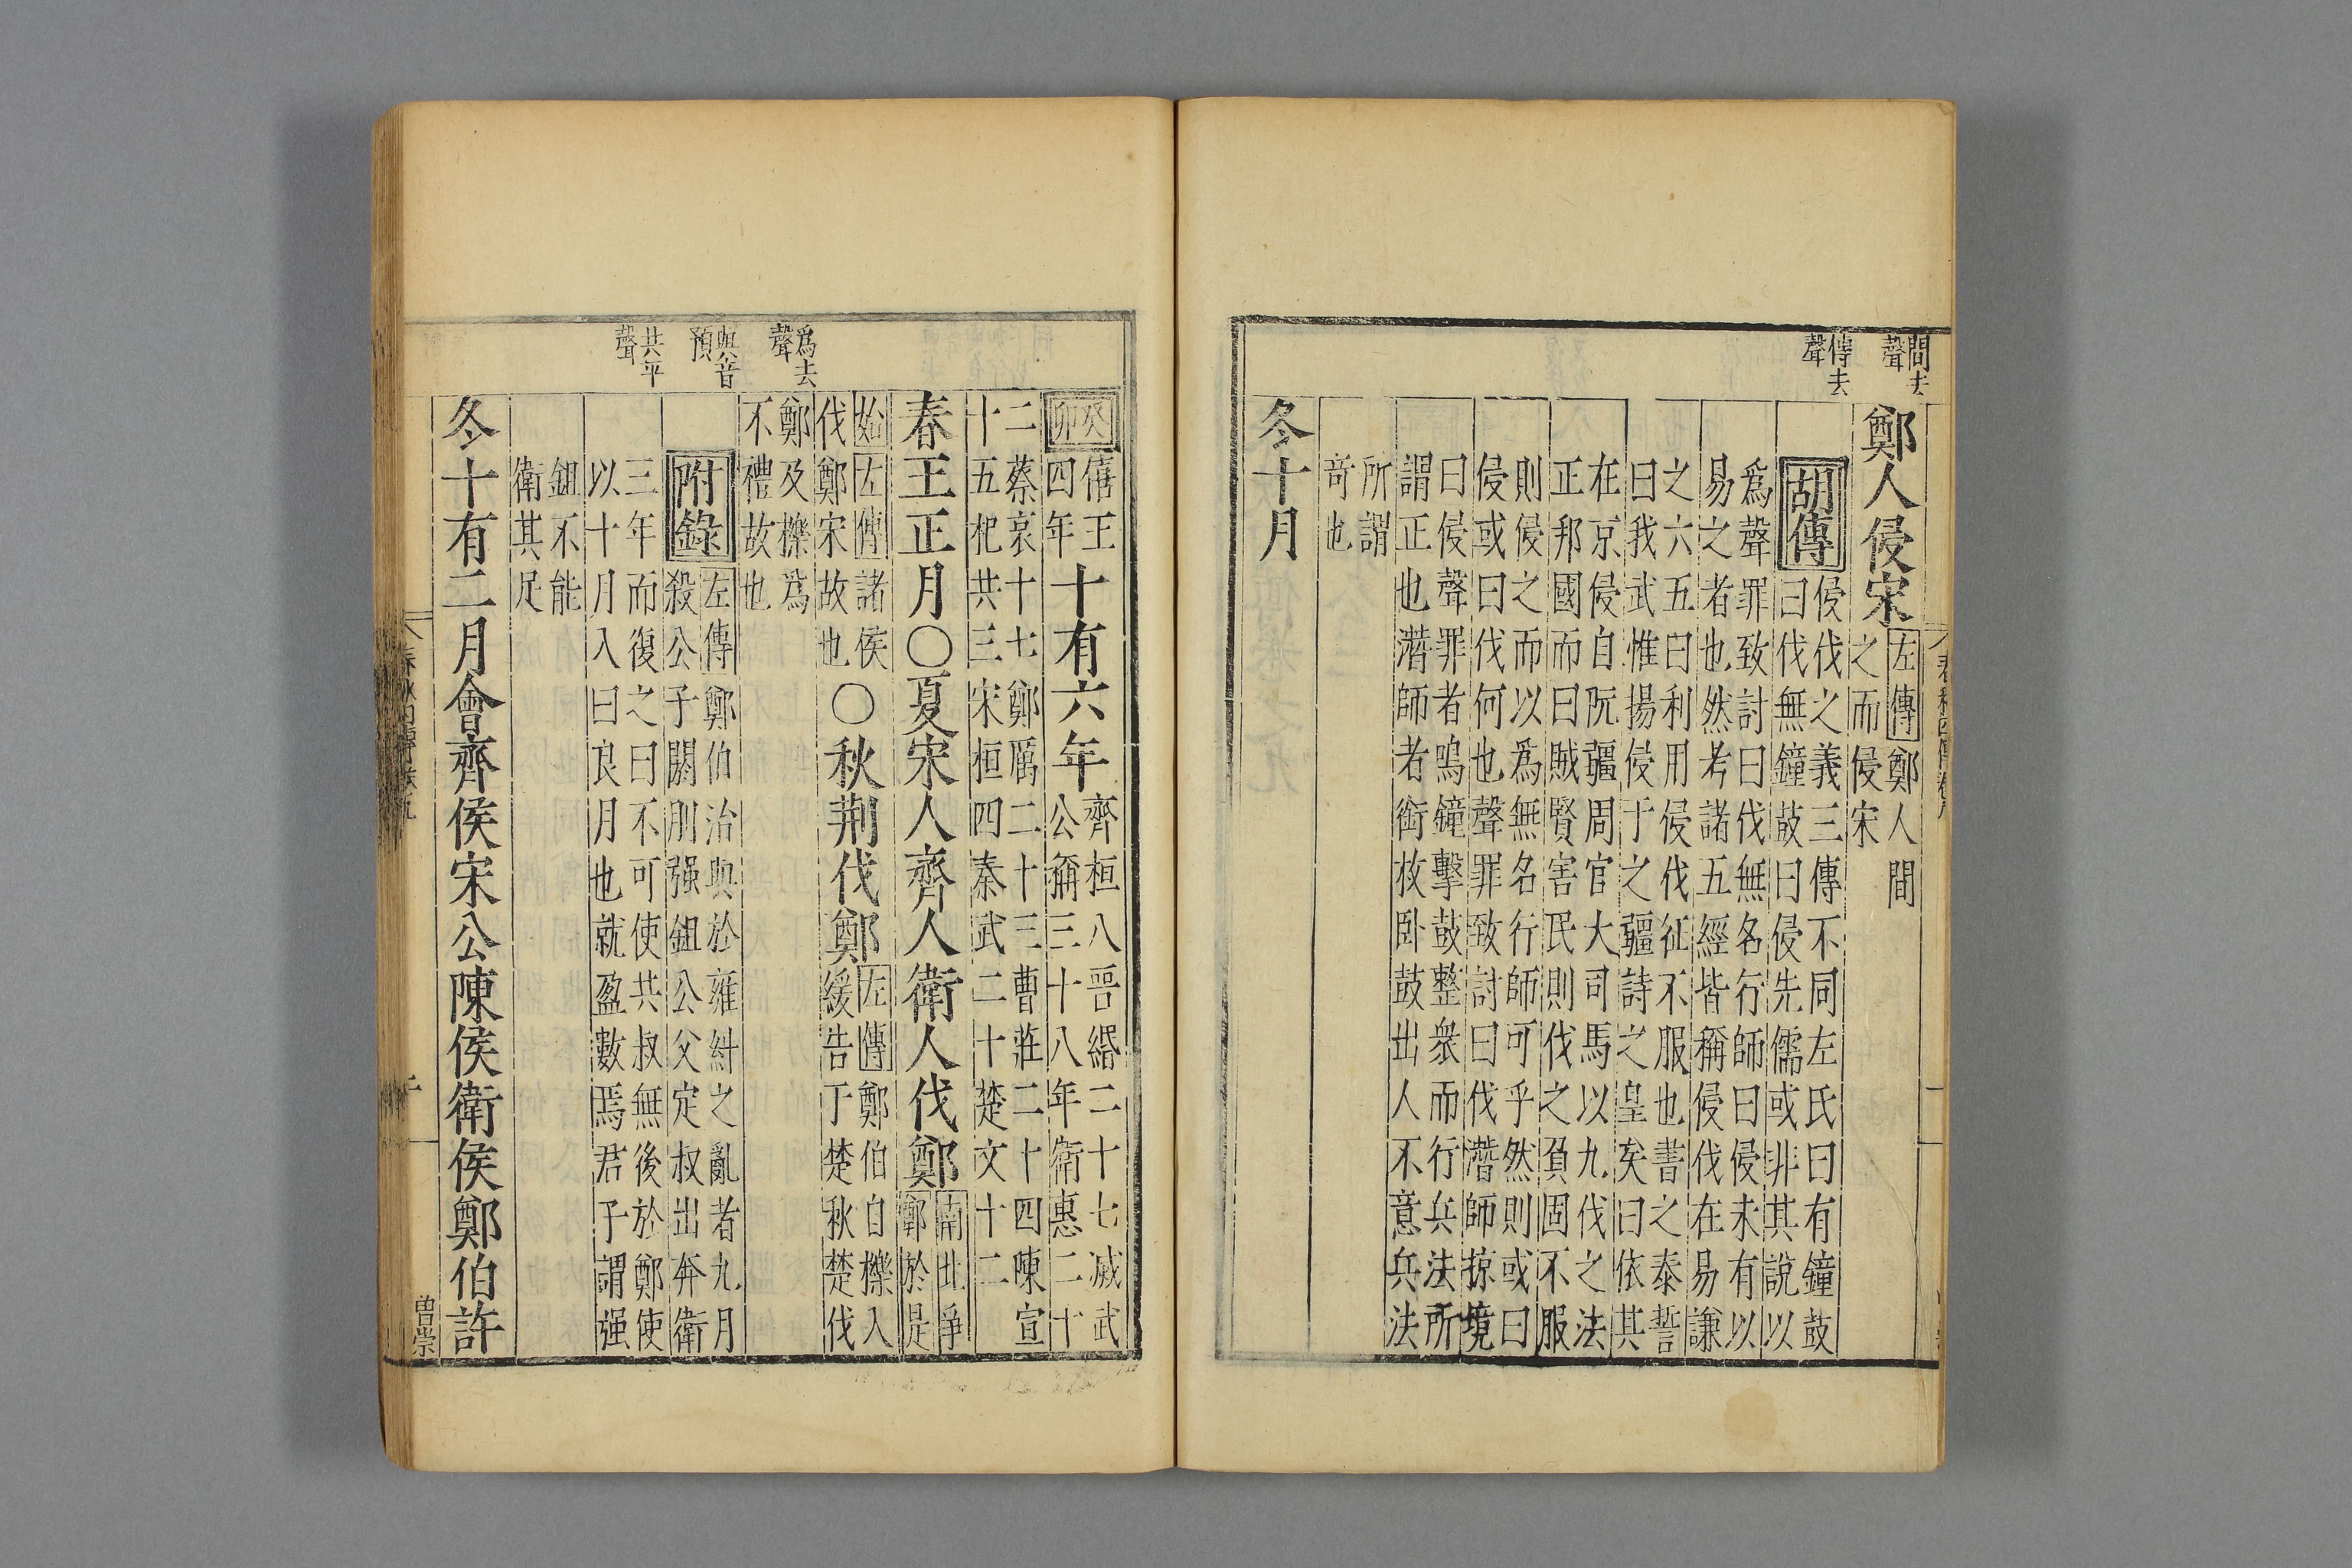 間去
聲
傳去
聲
鄭人侵宋
左傳鄭人間
之而侵宋
胡傳
侵伐之義三傳不同左氏曰有鐘鼓
曰伐無鐘鼓曰侵先儒或非其說以
爲聲罪致討曰伐無名行師曰侵未有以
易之者也然考諸五經皆稱侵伐在易謙
之六五曰利用侵伐征不服也書之泰誓
曰我武惟揚侵于之疆詩之皇矣曰依其
在京侵自阮疆周官大司馬以九伐之法
正邦國而曰賊賢害民則伐之負固不服
則侵之而以爲無名行師可乎然則或曰
侵或曰伐何也聲罪致討曰伐潛師掠境
曰侵聲罪者鳴鐘擊鼓整衆而行兵法所
謂正也潛師者銜枚卧鼓出人不意兵法
所謂
竒也
冬十月
爲去
聲
與音
預
共平
聲
癸卯
僖王
四年
十有六年
齊桓八晉緡二十七滅武
公稱三十八年衛惠二十
二蔡哀十七鄭厲二十三曹莊二十四陳宣
十五杞共三宋桓四秦武二十楚文十二
春王正月〇夏宋人齊人衛人伐鄭
南北爭
鄭於是
始左傳諸侯
伐鄭宋故也
〇秋荆伐鄭
左傳鄭伯自櫟入
緩告于楚秋楚伐
鄭及櫟爲
不禮故也
附錄
左傳鄭伯治與於雍糾之亂者九月
殺公子閼刖强鉏公父定叔出奔衛
三年而復之曰不可使共叔無後於鄭使
以十月入曰良月也就盈數焉君子謂强
鉏不能
衛其足
冬十有二月會齊侯宋公陳侯衛侯鄭伯許
曾崇